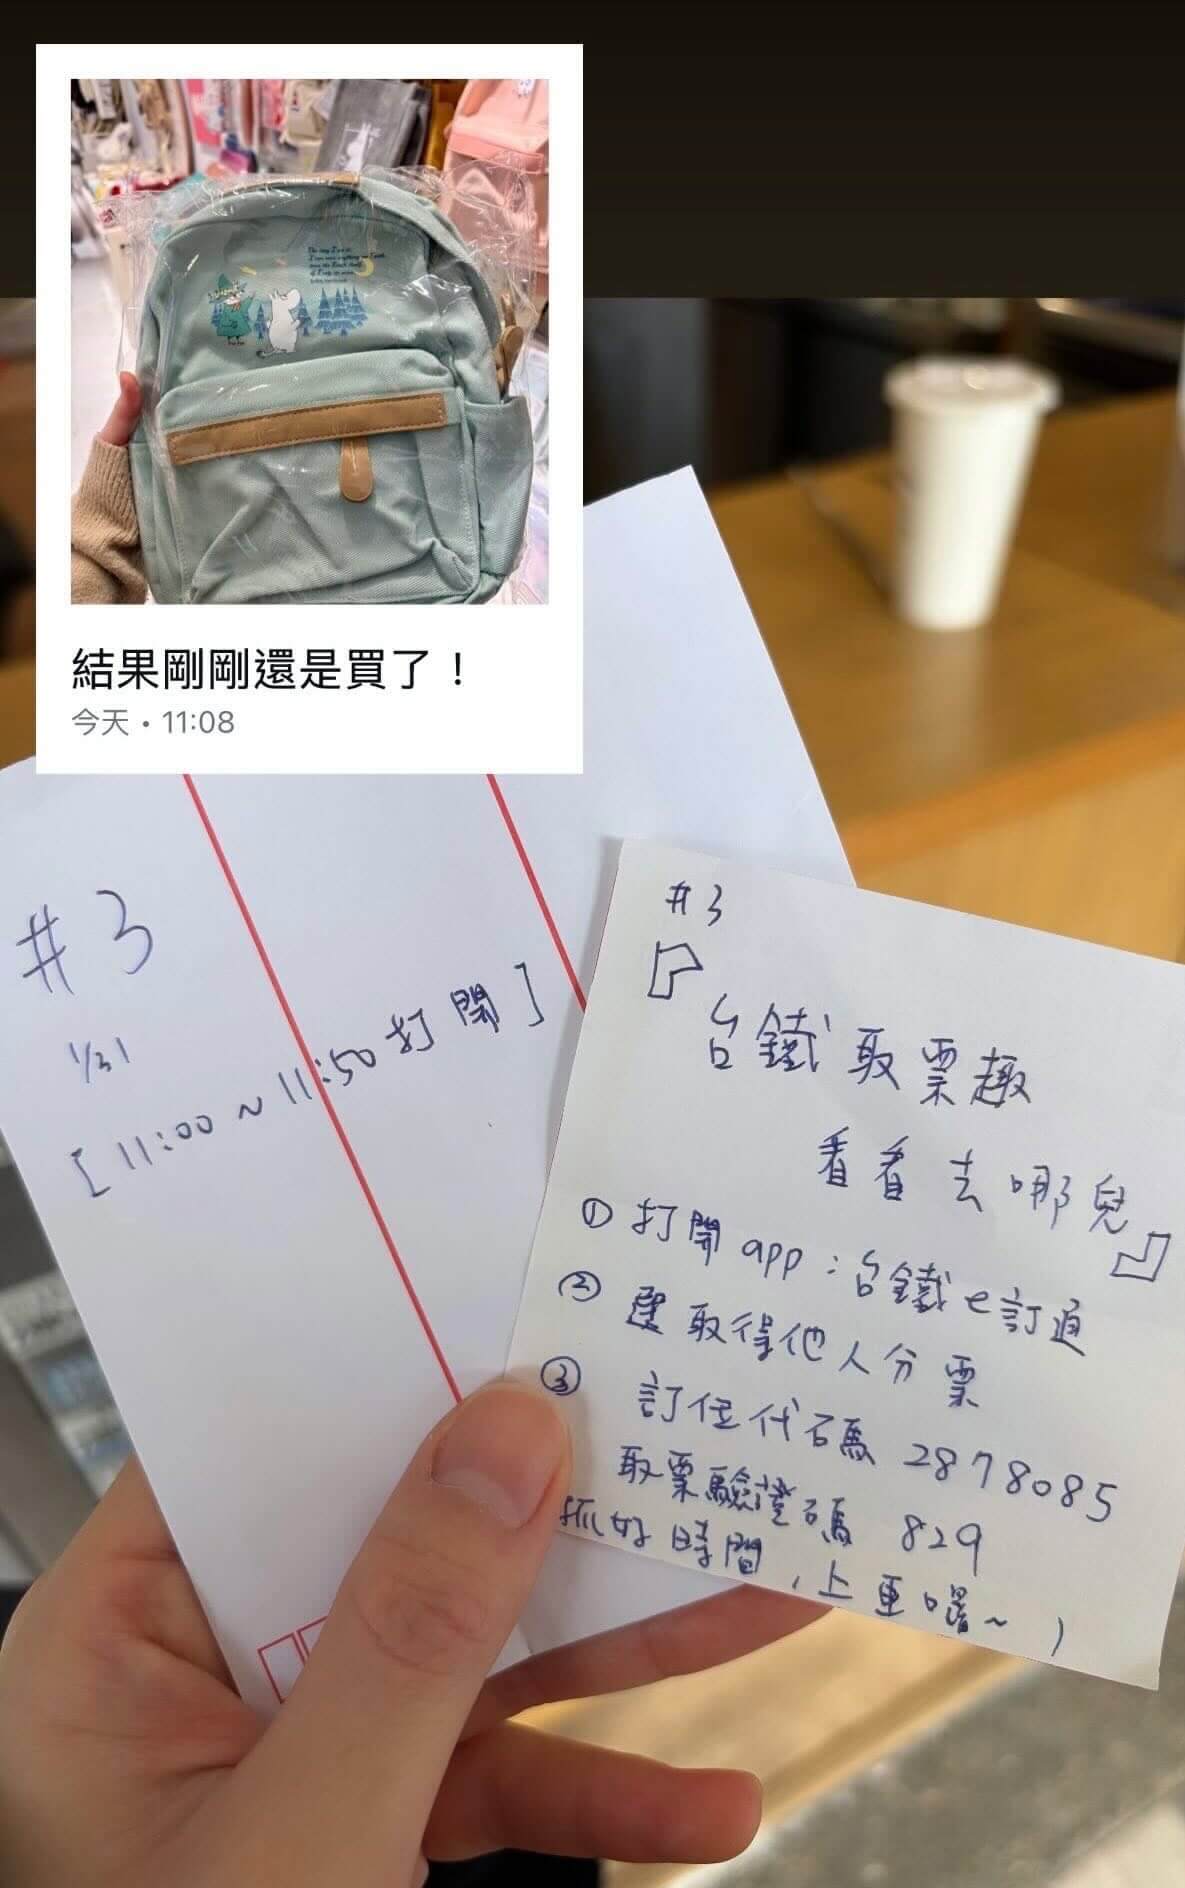 結果剛剛還是買了！
今天・11:08
#3
1/31
[11:00~11:50打開]
#3
『台鐵取票趣
看看去哪兒』
① 打開app:台鐵e訂通
② 選取得他人分票
③ 訂位代碼 2878085
取票驗證碼 829
抓好時間,上車囉~)